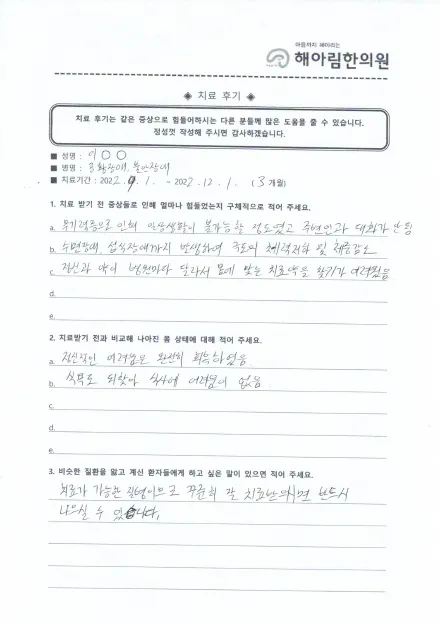 마음까지 헤아리는
해아림한의원
◈ 치료 후기 ◈
치료 후기는 같은 증상으로 힘들어하시는 다른 분들께 많은 도움을 줄 수 있습니다.
정성껏 작성해 주시면 감사하겠습니다.
■ 성명 : 이 ○ ○
■ 병명 : 공황장애, 불안장애
■ 치료기간 : 2022. 9. 1. ~ 2022. 12. 1. (3개월)
1. 치료 받기 전 증상들로 인해 얼마나 힘들었는지 구체적으로 적어 주세요.
a. 무기력증으로 인해 일상생활이 불가능할 정도였고 주변인과 대화가 안됨
b. 수면장애, 섭식장애까지 발생하여 극도의 체력저하 및 체중감소
c. 진단과 약이 병원마다 달라서 몸에 맞는 치료약을 찾기가 어려웠음
d.
e.
2. 치료받기 전과 비교해 나아진 몸 상태에 대해 적어 주세요.
a. 정신적인 어려움은 완전히 회복하였음
b. 식욕도 되찾아 식사에 어려움이 없음
c.
d.
e.
3. 비슷한 질환을 앓고 계신 환자들에게 하고 싶은 말이 있으면 적어 주세요.
치료가 가능한 질병이므로 꾸준히 잘 치료받으시면 반드시
나으실 수 있습니다.